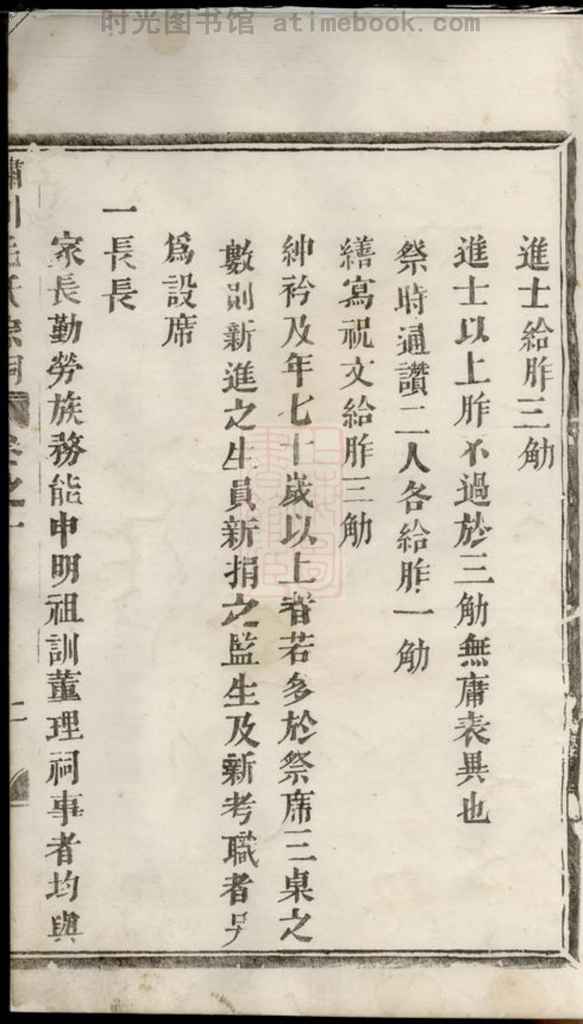 时光图书馆 atimebook.com
進士給胙三觔
進士以上胙不過於三觔無庸表異也
祭時通讚二人各給胙一觔
繕寫祝文給胙三觔
紳衿及年七十歲以上者若多於祭席三桌之
數則新進之生員新捐之監生及新考職者另
爲設席
一長長
家長勤勞族務能申明祖訓董理祠事者均與
氏宗祠 卷之一 二